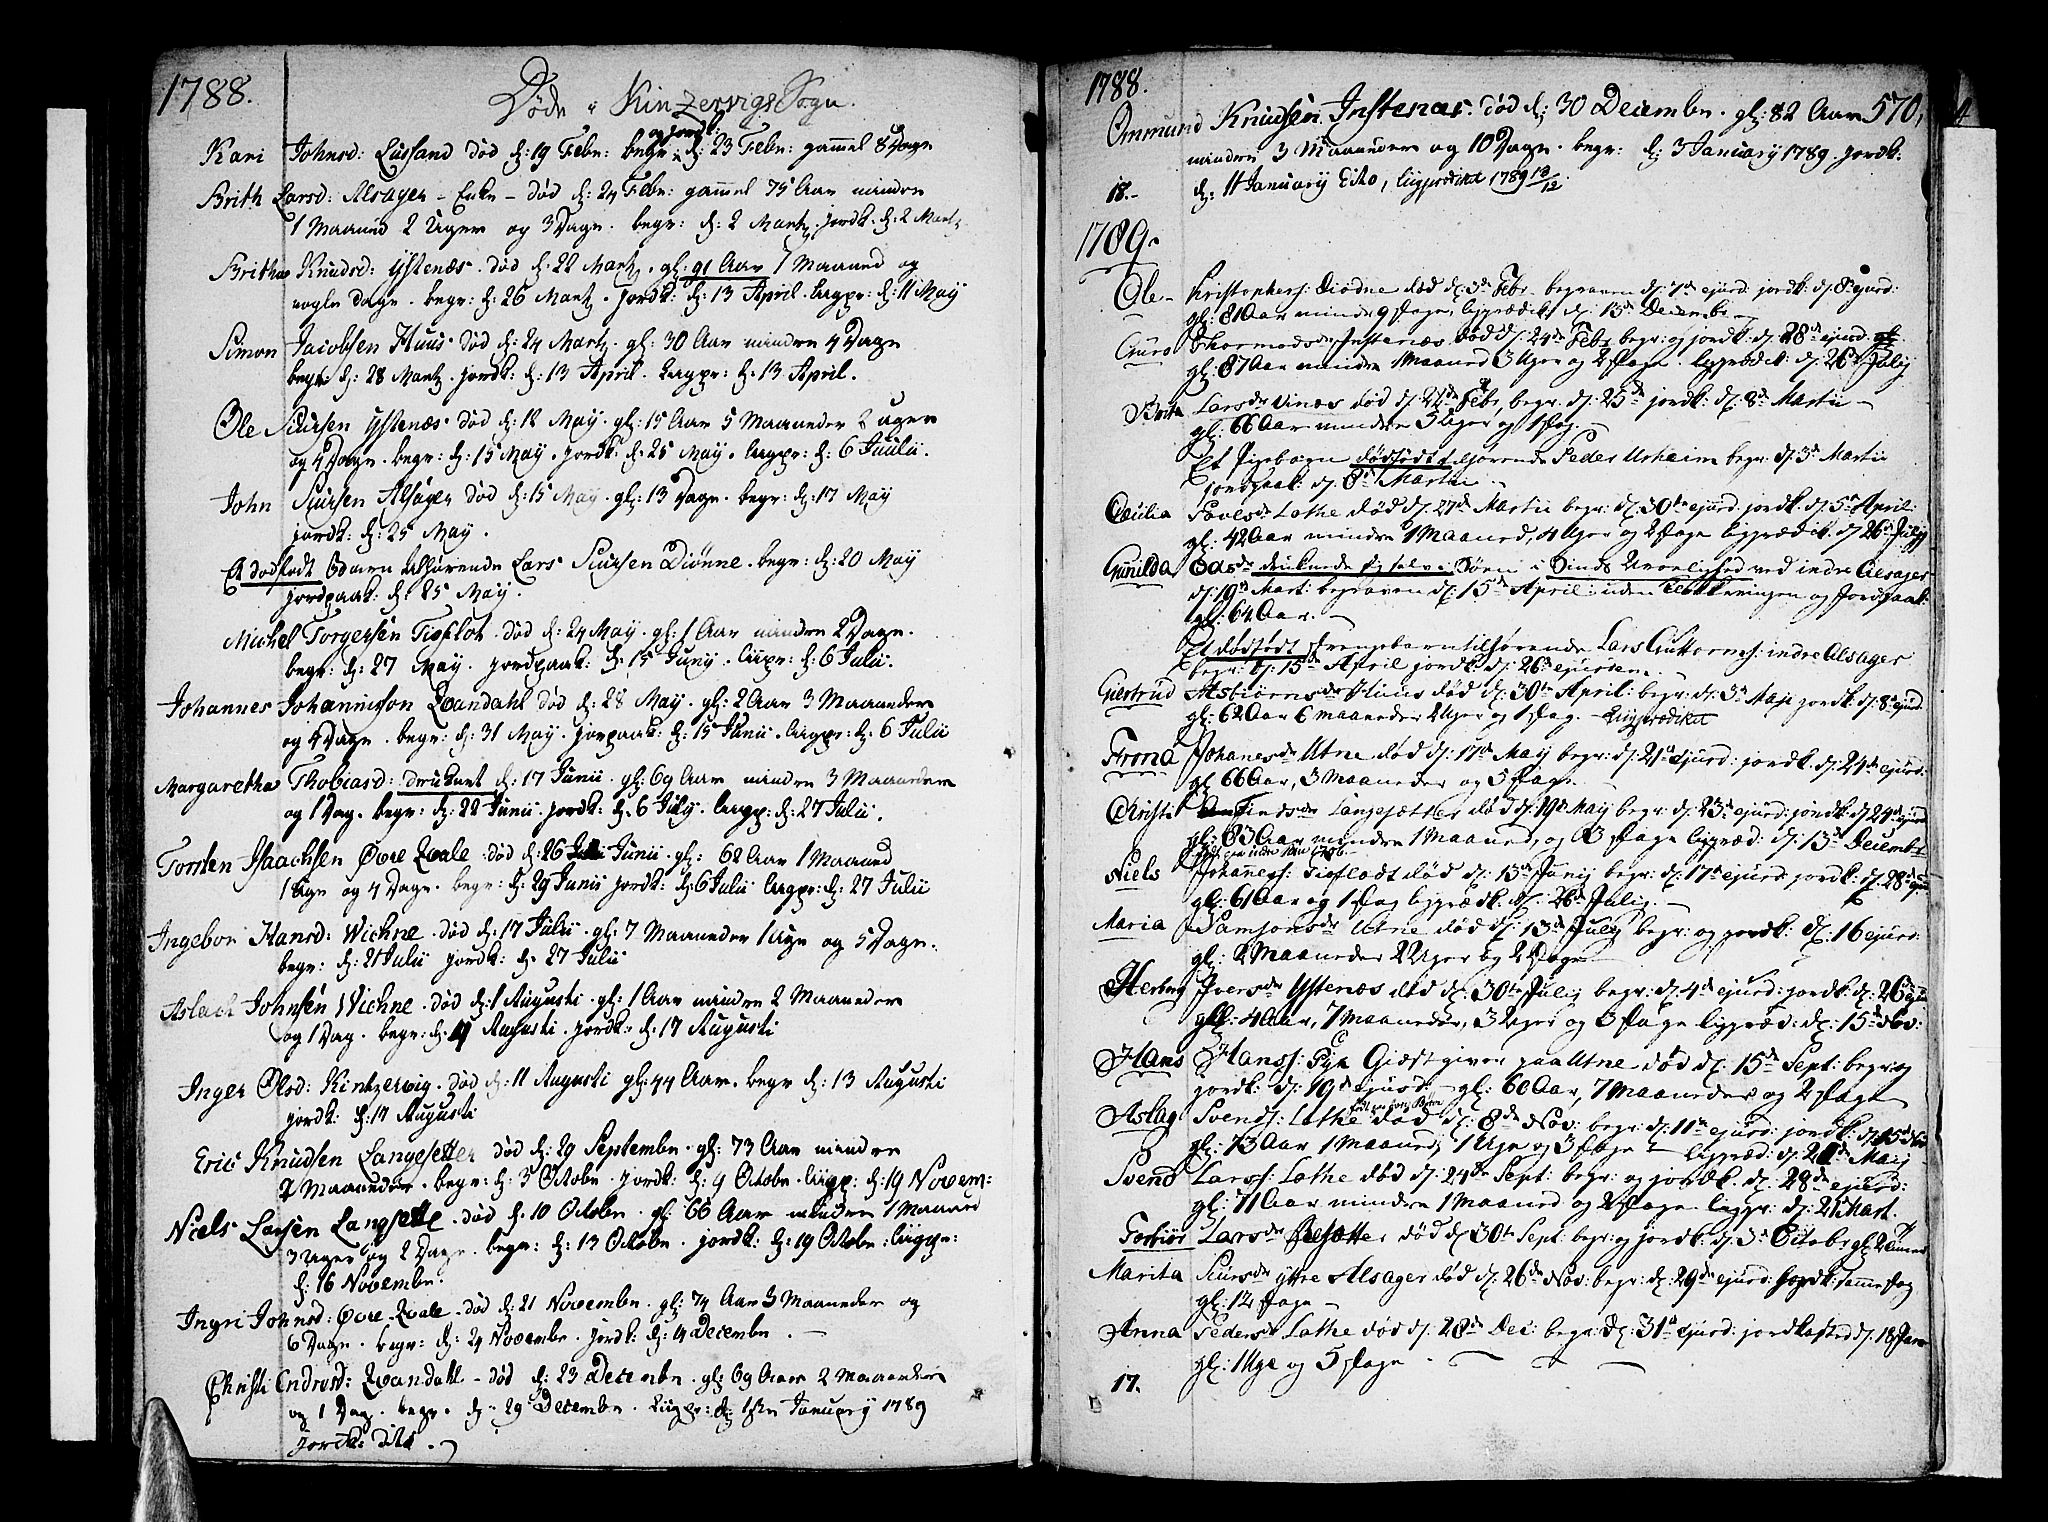 1788.
Døde i Kinzervigs Sogn.
og jordk:
Kari Johnsd: Lussand død d: 19 Febr: begr: d: 23 Febr: gammel 8 Dage
Brith Larsd: Alsager - Enke - død d: 24 Febr: gammel 75 Aar mindre
1 Maaned 2 Uger og 3 Dage. begr: d: 2 Martz jordk. d: 2 Martz
Britha Knudsd: Ystenæs. død d: 22 Martz. gl: 91 Aar 1 Maaned og
nogle Dage. begr: d: 26 Martz. jordk: d: 13 April. Liigpr: d: 11 May
Simon Jacobsen Huus død d: 24 Martz. gl: 30 Aar mindre 4 Dage
begr: d: 28 Martz. jordk: d: 13 April. Liigpr: d. 13 April.
Ole Siursen Ystenæs død d: 12 May. gl: 15 Aar 5 Maaneder 2 uger
og 4 Dage. begr: d: 15 May. jordk: d: 25 May. Liigpr: d: 6 Julii.
John Siursen Alsager død d: 15 May. gl: 13 Dage. begr: d: 17 May
jordk: d: 25 May.
Et dødfødt Barn tilhørende Lars Siursen Diønne. begr: d: 20 May
jordpaak: d: 25 May.
Michel Torgersen Tioflot. død d: 24 May. gl: 1 Aar mindre 2 Dage.
begr: d: 27 May. jordpaak: d: 15 Juny. Liigpr: d: 6 Julii.
Johannes Johannisson Qvandahl død d: 28 May. gl: 2 Aar 3 Maaneder
og 4 Dage. begr: d: 31 May. jorpaak: d: 15 Junii. Liigpr: d: 6 Julii
Margaretha Thobiasd: druknet d: 17 Junii. gl: 69 Aar mindre 3 Maaneder
og 1 Dag. begr: d: 22 Junii jordk: d. 6 July. Liigp: d: 27 Julii.
Torsten Isaachsen Øvre Qvale. død d: 26 Junii. gl: 62 Aar 1 Maaned
1 Uge og 4 Dage. begr: d: 29 Junii jordk: d: 6 Julii Liigpr: d: 27 Julii
Ingebor Hansd: Wichne. død d: 17 Julii. gl: 7 Maaneder 1 Uge og 5 Dage.
begr: d: 21 Julii jordk: d. 27 Julii
Aslach Johnsen Wichne. død d: 1 Augusti. gl: 1 Aar mindre 2 Maaneder
og 1 Dag. begr: d: 4 Augusti. jordk: d: 17 Augusti
Inger Olsd: Kintzervig. død d: 11 Augusti gl: 44 Aar. begr d: 13 Augusti
jordk: d: 17 Augusti
Eric Knudsen Langesetter død d: 29 Septembr. gl: 73 Aar mindre
2 Maaneder. begr: d: 3 Octobr. jordk: d: 4 Octobr. Liigp: d: 19 Novem:
Niels Larsen Langsette. død d. 10 Octobr. gl: 66 Aar mindre 1 Maaned
3 Uger og 2 Dage. begr: d: 13 Octobr. jordk: d: 19 Octobr: Liigpr:
d: 16 Novembr.
Ingri Johnsd: Øvre Qvale. død d: 21 Novembr. gl: 74 Aar 3 Maaneder og
6 Dage. begr: d: 24 Novembr. jordk: d: 4 Decembr.
Christi Endresd: Qvandahl - død d: 23 Decembr. gl: 69 Aar 2 Maaneder
og 1 Dag. begr. d: 29 Decembr. Liigpr: d: January 1789
jordk: dito.
1788.
570,
Ommund Knudsen Instenæs. død d: 30 Decembr. gl: 82 Aar
mindre 3 Maaneder og 10 Dage. begr: d: 3 January 1789. jordk:
18.- d: 11 January Eito, Liigprædiket 1789 13/12
1789.
Ole Kristophers: Diødne død d: 3de Febr. begraven d: 7de ejusd: jordk: d: 8de ejusd:
gl: 81 Aar mindre 9 Dage, ligprædiket d: 15de Decembr
Guro Thormodsdr Instenæs død d: 24de Febr. begr: og jordk: d: 28de ejusd.
gl: 87 Aar mindre 1 Maaned 3 Uger og 2 Dage. ligprædik: d: 26de July
Brita Larsdr Vines død d: 21de Febr, begr: d: 25de jordk: d: 8de Martii
gl: 66 Aar mindre 3 Uger og 1 Dag.
Et Pigebarn dødfødt tilhørende Peder Urheim begr: d: 3de Martii
jordpaak: d: 8de Martii
Cæcilia Povelsdr Lothe død d: 27de Martii begr: d: 30te ejusd: jordk: d: 5te April:
gl: 42 Aar mindre 1 Maaned, 4 Uger og 2 Dage ligprædik: d: 26de July
Gunilda druknede sig selv i Søen i Sinds Uroelighed ved indre Alsager
d: 19de Mart: begraven d: 15de April: uden Klokkeringen og Jordpaak:
gl: 64 Aar.
Et dødfødt Drengebarn tilhørende Lars Guttorms: indre Alsager
begr: d: 15de April jordk: d: 26de ejusdem
Giertrud Asbiørnsdr Huus død d: 30te April: begr: d: 3de Maji jordk: d: 8de ejusd:
gl: 62 Aar 6 maaneder 2 Uger og 1 Dag. Liigprædiket
Frona Johanesdr Utne død d: 17de May begr: d: 21de ejusd: jordk: d: 24de ejusd:
gl: 66 Aar, 3 Maaneder og 5 Dage.
Christi Langesætter død d: 19de May begr: d: 23de ejusd: jordk: d: 24de ejusd
gl: 83 Aar mindre 1 Maaned, og 3 Dage ligpræd: d: 13de Decembr
Niels Johaness: Tiosfladt død d: 13de Junij begr: d: 17de ejusd: jordk: d: 28de ejus
gl: 61 Aar og 1 Dag ligprædk: d: 26de Julij.
Maria Samsonsdr Utne død d: 13de July begr: og jordk: d: 16 ejusd:
gl: 2 Maaneder 2 Uger og 2 Dage
Herborg Iversdr Ystenæs død d: 30te July begr: d: 4de ejusd: jordk: d: 26de ejus
gl: 4 Aar, 7 maaneder, 3 Uger og 3 Dage ligpræd: d: 15de Nov:
Hans Hanss: Giæstgiver paa Utne død d: 15de Sept: begr: og
jordk: d: 19de ejusd - gl: 60 Aar, 7 maaneder og 2 Dage
Aslag Svends: Lothe død d: 8de Nov: begr: d: 11te ejusd: jordk: d: 15de Nov
gl: 73 Aar 1 Maaned, 1 Uge og 3 Dage - ligpræd: d: 24de Maij
Svend Larss: Lothe død d: 24de Sept: begr: og jordk: d: 28de ejusd:
gl: 71 Aar mindre 1 Maaned og 2 Dage ligpr: d: 21de Mart.
Torbiør Larsdr død d: 30te Sept: begr: og jordk: d: 3de Octobr
Marita Siursdr ytre Alsager død d: 26de Nov: begr: d: 29de ejusd: jordk: samme Dag
gl: 12 Dage
Anna Pedersdr Lothe død d: 28de Dec: begr: d: 31te ejusd: jordkasted d: 18 Janv
gl: 1 Uge og 5 Dage.
17.